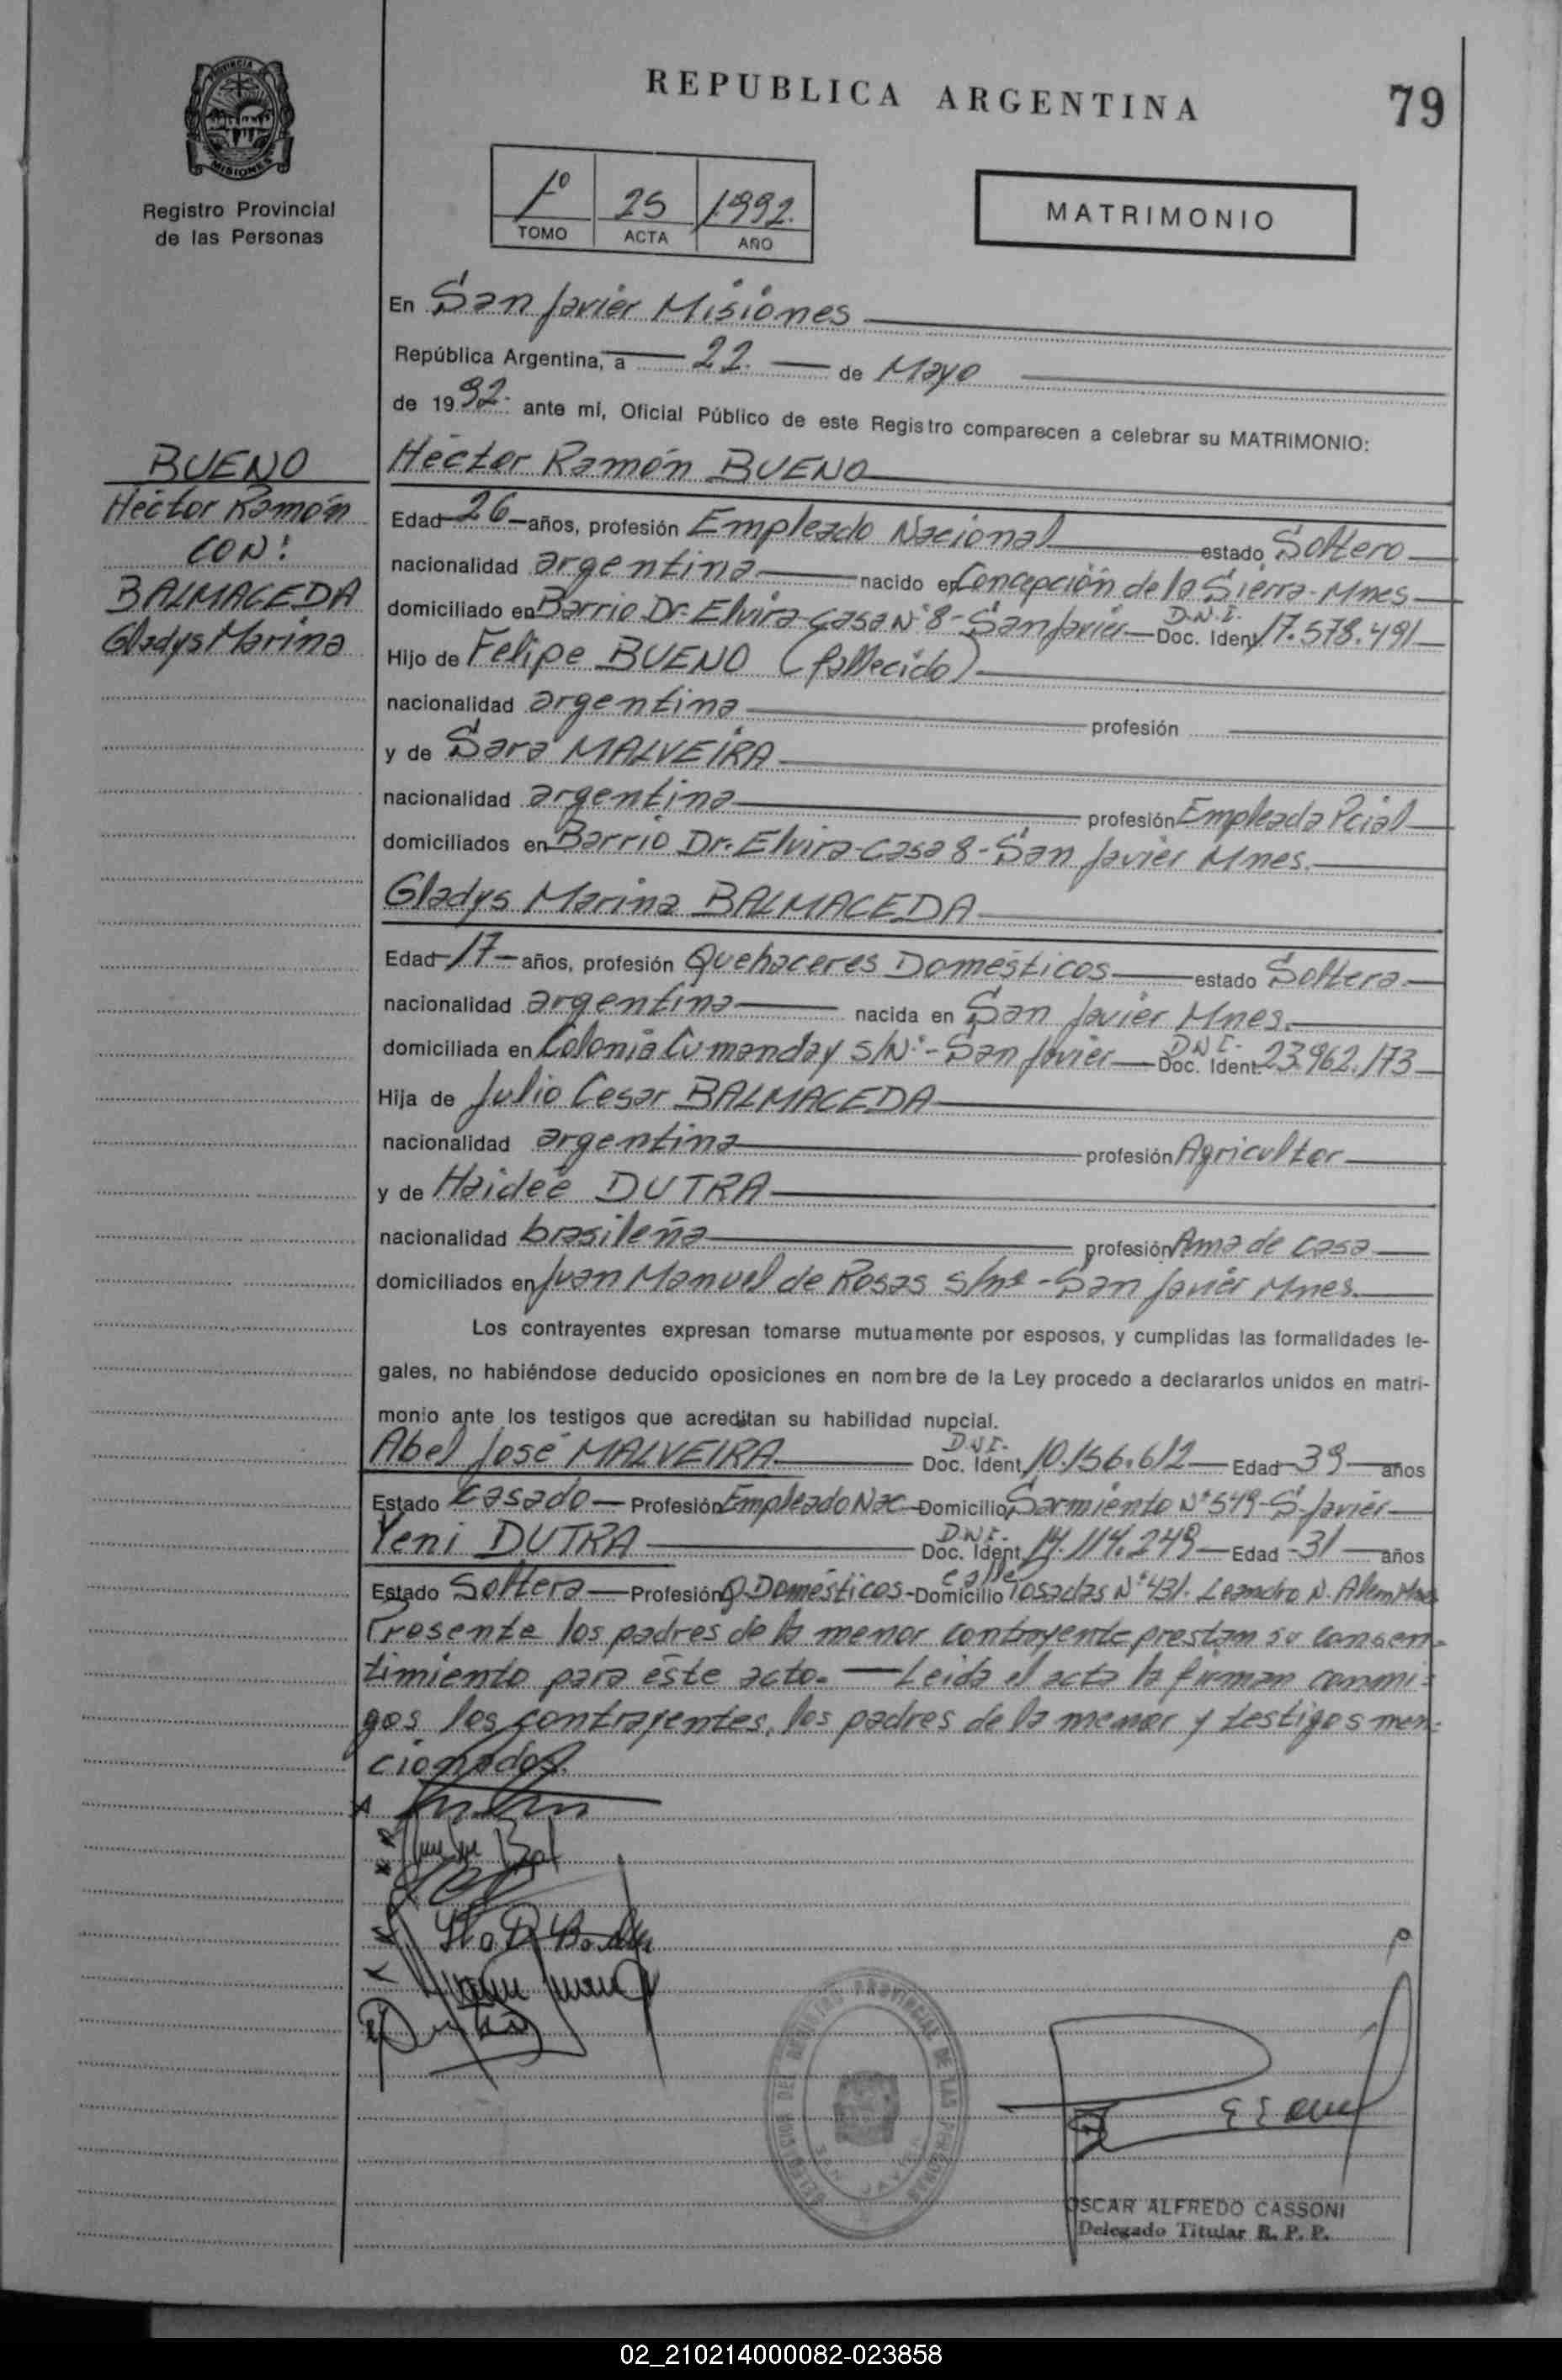 REPUBLICA ARGENTINA
79
PROVINCIA DE MISIONES
Registro Provincial
de las Personas
1º 25 1992.
TOMO ACTA AÑO
MATRIMONIO
En San Javier Misiones
República Argentina, a 22. de Mayo
de 1992. ante mí, Oficial Público de este Registro comparecen a celebrar su MATRIMONIO:
BUENO
Héctor Ramón
CON:
BALMACEDA
Gladys Marina
Héctor Ramón BUENO
Edad 26 años, profesión Empleado Nacional estado Soltero
nacionalidad argentina nacido en Concepción de la Sierra - Mnes
domiciliado en Barrio Dr. Elvira-casa Nº 8 - San Javier D.N.I. Doc. Ident. 17.578.491
Hijo de Felipe BUENO (fallecido)
nacionalidad argentina profesión
y de Sara MALVEIRA
nacionalidad argentina profesión Empleada Pcial
domiciliados en Barrio Dr. Elvira-casa 8 - San Javier Mnes.
Gladys Marina BALMACEDA
Edad 17 años, profesión Quehaceres Domésticos estado Soltera.
nacionalidad argentina nacida en San Javier Mnes.
domiciliada en Colonia Cumanday s/Nº - San Javier D.N.I. Doc. Ident. 23.962.173
Hija de Julio Cesar BALMACEDA
nacionalidad argentina profesión Agricultor
y de Haideé DUTRA
nacionalidad brasileña profesión Ama de casa
domiciliados en Juan Manuel de Rosas s/nº - San Javier Mnes.
Los contrayentes expresan tomarse mutuamente por esposos, y cumplidas las formalidades le-
gales, no habiéndose deducido oposiciones en nombre de la Ley procedo a declararlos unidos en matri-
monio ante los testigos que acreditan su habilidad nupcial.
Abel José MALVEIRA D.N.I. Doc. Ident. 10.156.612 Edad 39 años
Estado Casado Profesión Empleado Nac Domicilio Sarmiento Nº 549 - S. Javier
Yeni DUTRA D.N.I. Doc. Ident. 14.114.249 Edad 31 años
Estado Soltera Profesión Q. Domésticos - Domicilio calle Posadas Nº 431. Leandro N. Alem Mnes
Presente los padres de la menor contrayente prestan su consen=
timiento para éste acto. — Leida el acta la firman conmi=
gos los contrayentes, los padres de la menor y testigos men=
cionados.
OSCAR ALFREDO CASSONI
Delegado Titular R. P. P.
02_210214000082-023858